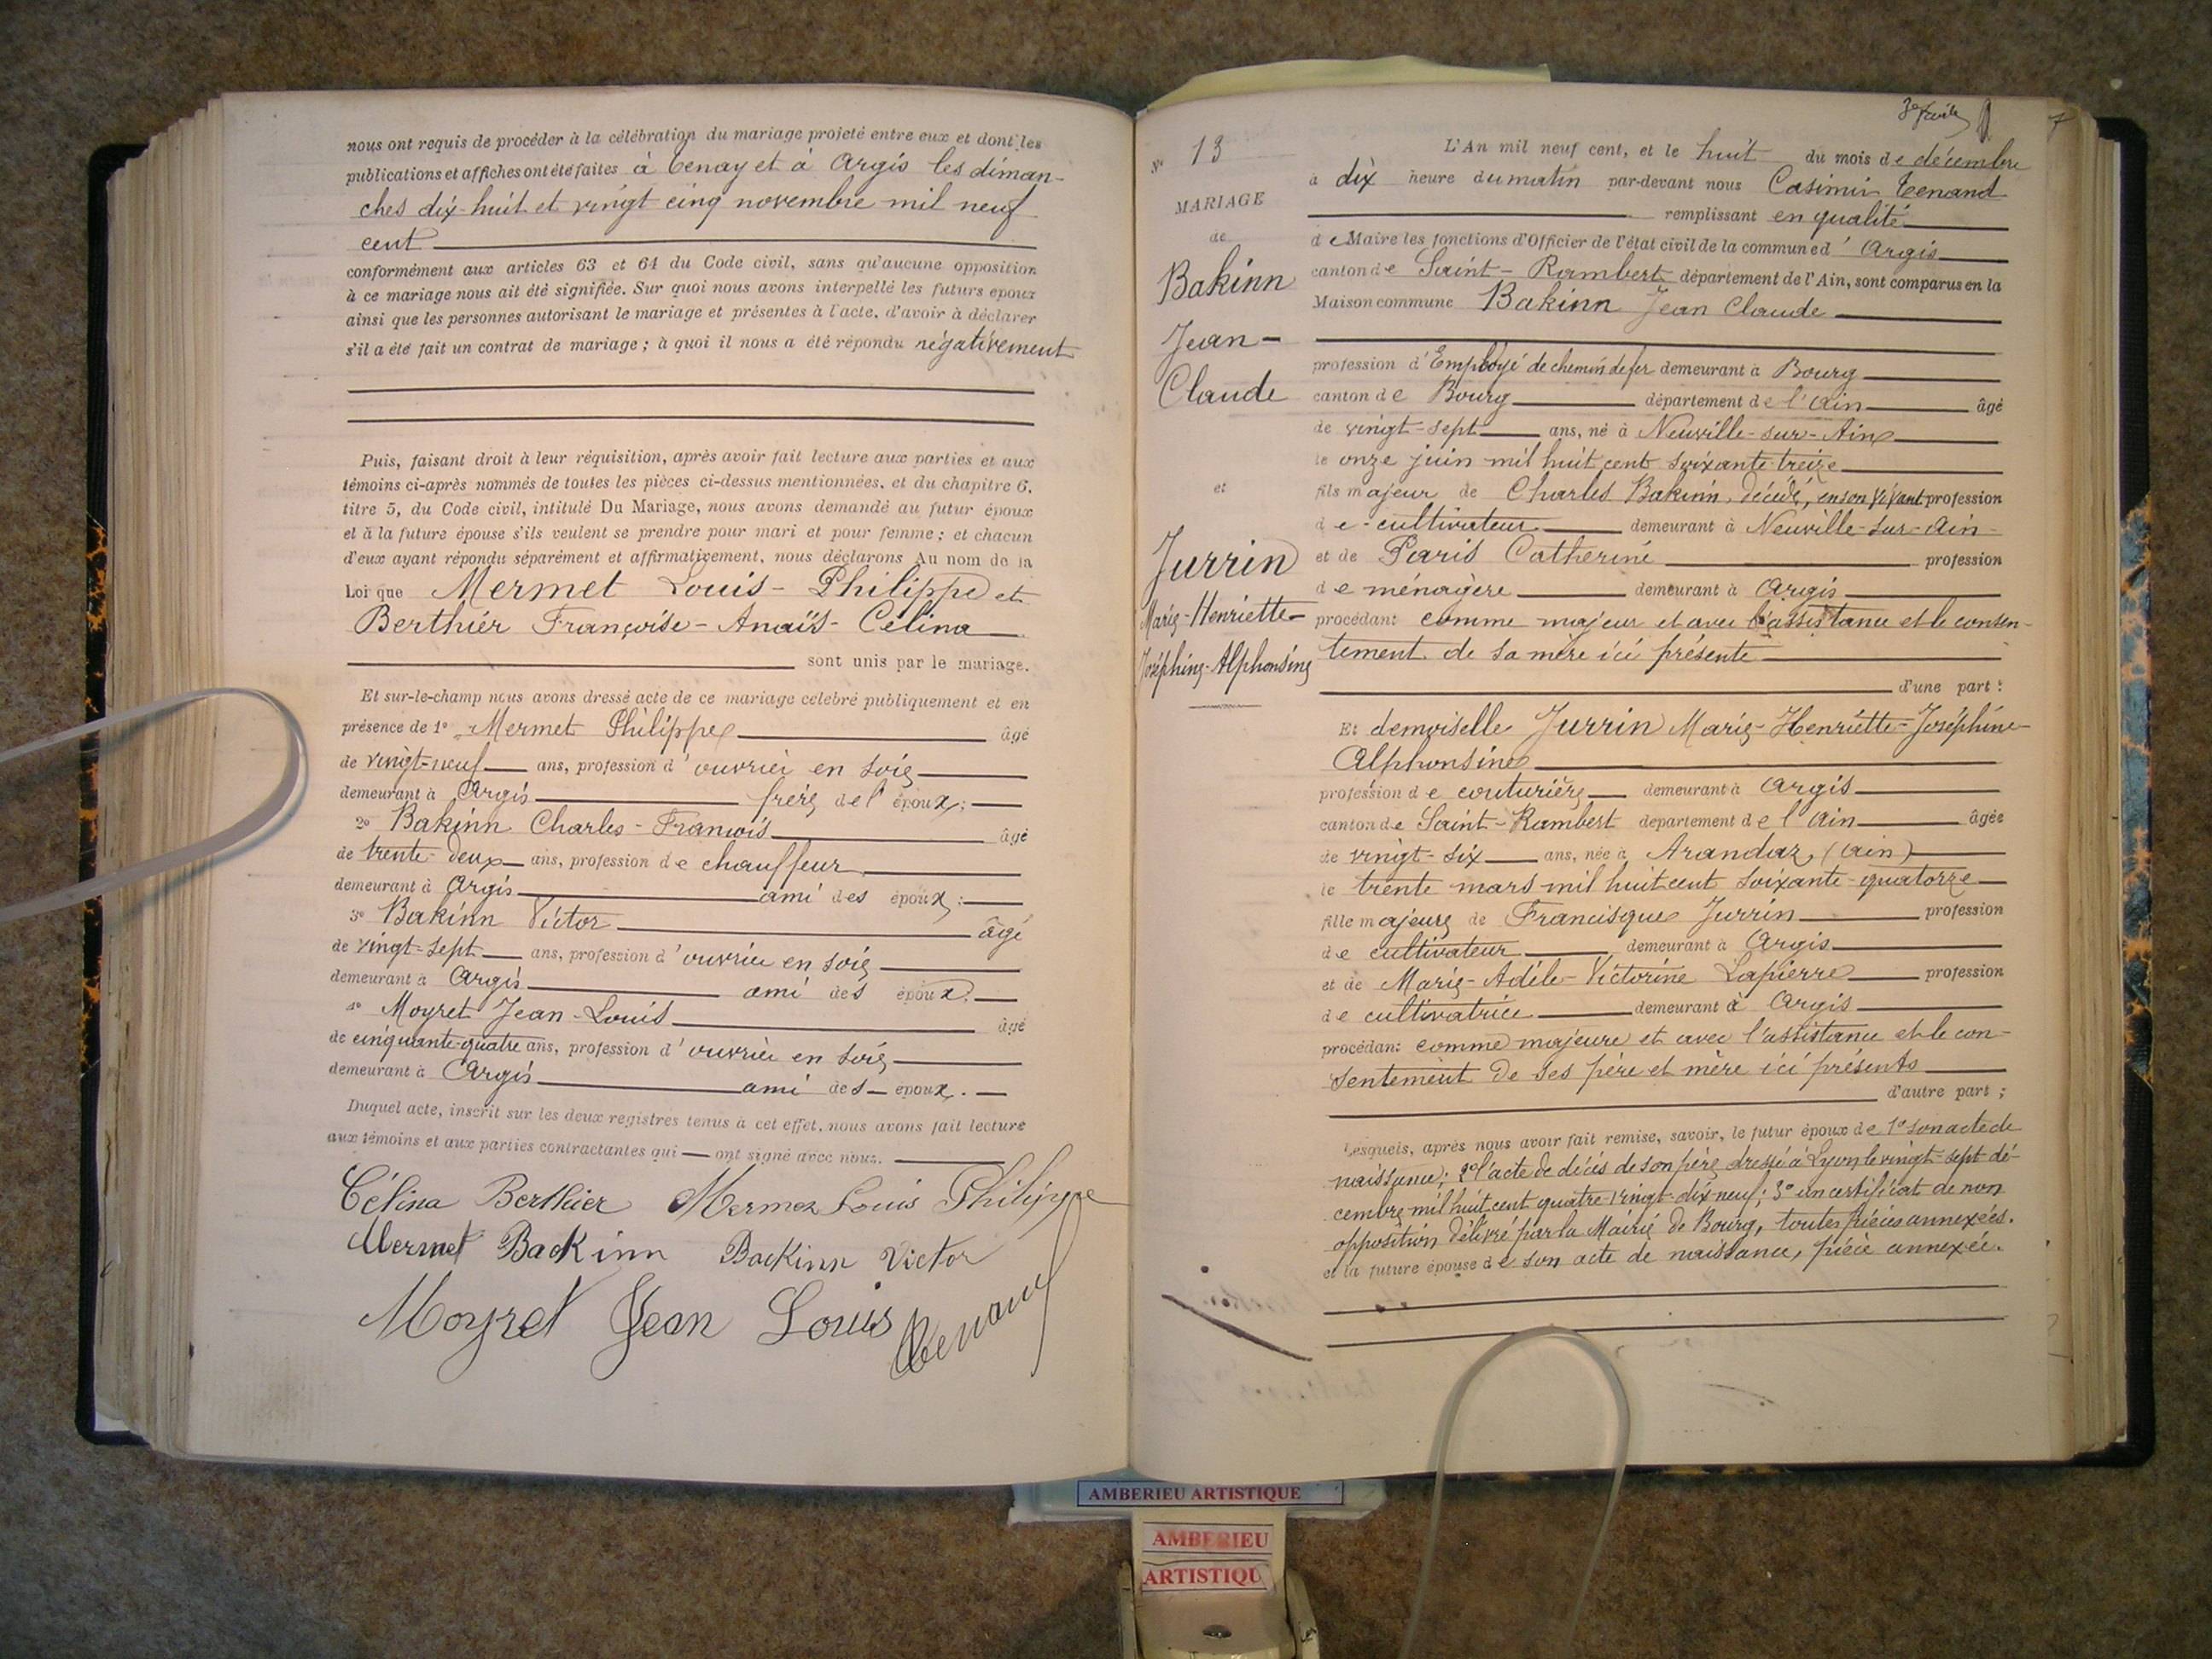 nous ont requis de procéder à la célébration du mariage projeté entre eux et dont les
publications et affiches ont été faites à Tenay et à Argis les diman-
ches dix-huit et vingt cinq novembre mil neuf
cent
conformément aux articles 63 et 64 du Code civil, sans qu'aucune opposition
à ce mariage nous ait été signifiée. Sur quoi nous avons interpellé les futurs epoux
ainsi que les personnes autorisant le mariage et présentes à l'acte, d'avoir à déclarer
s'il a été fait un contrat de mariage ; à quoi il nous a été répondu négativement
Puis, faisant droit à leur réquisition, après avoir fait lecture aux parties et aux
témoins ci-après nommés de toutes les pièces ci-dessus mentionnées, et du chapitre 6,
titre 5, du Code civil, intitulé Du Mariage, nous avons demandé au futur époux
et à la future épouse s'ils veulent se prendre pour mari et pour femme ; et chacun
d'eux ayant répondu séparément et affirmativement, nous déclarons Au nom de la
Loi que Mermet Louis-Philippe et
Berthier Françoise-Anaïs-Célina
sont unis par le mariage.
Et sur-le-champ nous avons dressé acte de ce mariage célébré publiquement et en
présence de 1° Mermet Philippe âgé
de vingt-neuf ans, profession d'ouvrier en soie
demeurant à Argis frère de l'époux ;
2° Bakinn Charles-François âgé
de trente-deux ans, profession de chauffeur
demeurant à Argis ami des époux ;
3° Bakinn Victor âgé
de vingt-sept ans, profession d'ouvrier en soie
demeurant à Argis ami des époux ;
4° Moyret Jean-Louis âgé
de cinquante-quatre ans, profession d'ouvrier en soie
demeurant à Argis ami des époux.
Duquel acte, inscrit sur les deux registres tenus à cet effet, nous avons fait lecture
aux témoins et aux parties contractantes qui ont signé avec nous.
Célina Berthier Mermet Louis Philippe
Mermet Backinn Backinn Victor
Moyret Jean Louis Tenand
7
N° 13
MARIAGE
de
Bakinn
Jean-
Claude
et
Jurrin
Marie-Henriette-
Joséphine-Alphonsine
L'An mil neuf cent, et le huit du mois de décembre
à dix heure du matin par-devant nous Casimir Tenand
remplissant en qualité
de Maire les fonctions d'Officier de l'état civil de la commune d'Argis
canton de Saint-Rambert département de l'Ain, sont comparus en la
Maison commune Bakinn Jean Claude
profession d'Employé de chemin de fer demeurant à Bourg
canton de Bourg département de l'Ain âgé
de vingt-sept ans, né à Neuville-sur-Ain
le onze juin mil huit cent soixante-treize
fils majeur de Charles Bakinn, décédé, en son vivant profession
de cultivateur demeurant à Neuville-sur-Ain
et de Paris Catherine profession
de ménagère demeurant à Argis
procédant comme majeur et avec l'assistance et le consen-
tement de sa mère ici présente
d'une part :
Et demoiselle Jurrin Marie-Henriette-Joséphine-
Alphonsine
profession de couturière demeurant à Argis
canton de Saint-Rambert département de l'Ain âgée
de vingt-six ans, née à Arandaz, (Ain)
le trente mars mil huit cent soixante-quatorze
fille majeure de Francisque Jurrin profession
de cultivateur demeurant à Argis
et de Marie-Adèle-Victorine Lapierre profession
de cultivatrice demeurant à Argis
procédant comme majeure et avec l'assistance et le con-
sentement de ses père et mère ici présents
d'autre part ;
Lesquels, après nous avoir fait remise, savoir, le futur époux de 1° son acte de
naissance ; 2° l'acte de décès de son père dressé à Lyon le vingt-sept dé-
cembre mil huit cent quatre vingt-dix neuf ; 3° un certificat de non
opposition délivré par la Mairie de Bourg, toutes pièces annexées.
et la future épouse de son acte de naissance, pièce annexée.
AMBERIEU ARTISTIQUE
AMBERIEU
ARTISTIQU